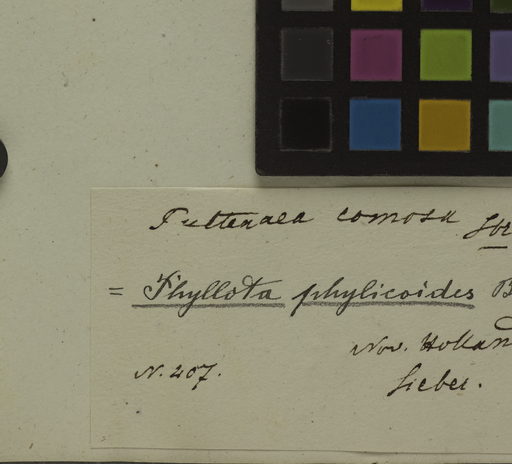 Pultenaea comosa
= Phyllota phylicoides B
Nov. Hollan
N. 207. Sieber.